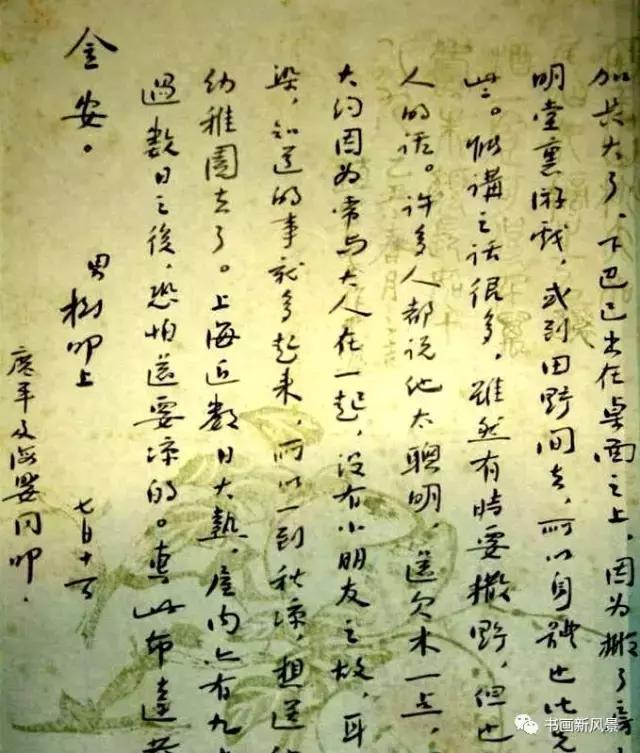 加长大了，下巴已出在桌面之上，因为搬了房
明堂裏游戏，或到田野间去，所以身體也比先
些。能講之话很多，雖然有時要撒野，但也
人的话。许多人都说他太聰明，還欠木一点，
大约因为常与大人在一起，没有小朋友之故，耳
染，知道的事就多起来，所以一到秋凉，想送他
幼稚園去了。上海近數日大熱，屋内亦有九十
過數日之後，恐怕還要凉的。專此布達，恭
金安。
男樹叩上 七月十二日
廣平及海嬰同叩．
书画新风景